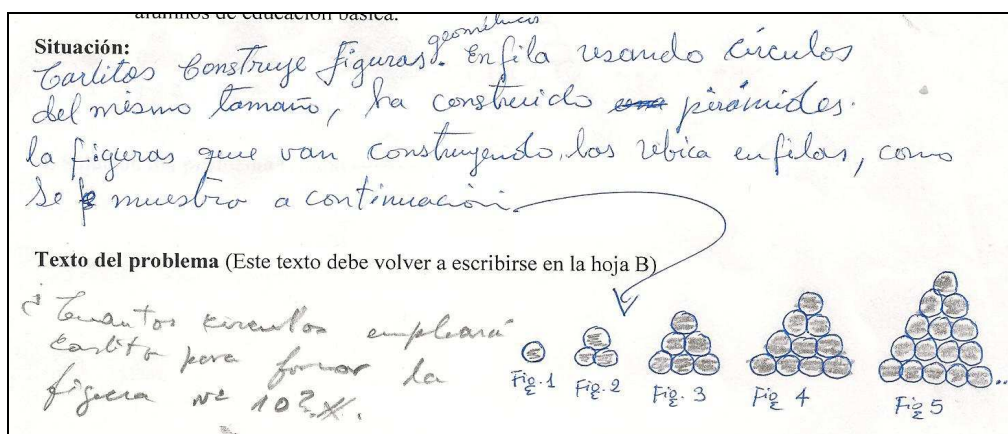 alumnos de educación básica.
Situación:
geométricas
Carlitos Construye figuras. En fila usando círculos
del mismo tamaño, ha construido una pirámides.
la figuras que van construyendo las ubica en filas, como
se muestra a continuación.
Texto del problema (Este texto debe volver a escribirse en la hoja B)
¿Cuantos circulos empleará
Carlito para formar la
figura Nº 10?
Fig. 1 Fig. 2 Fig. 3 Fig 4 Fig 5